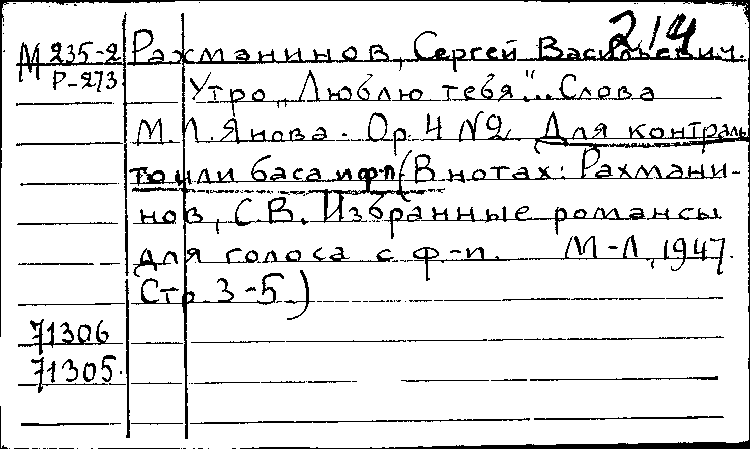 214
М 235-2 Рахманинов, Сергей Васильевич.
Р-273 Утро „Люблю тебя"... Слова
М.Л. Янова. Ор. 4 №2 Для контраль
то или баса и фп (В нотах: Рахмани-
нов, С.В. Избранные романсы
для голоса с ф-п. М-Л, 1947.
Стр. 3-5.)
71306
71305.